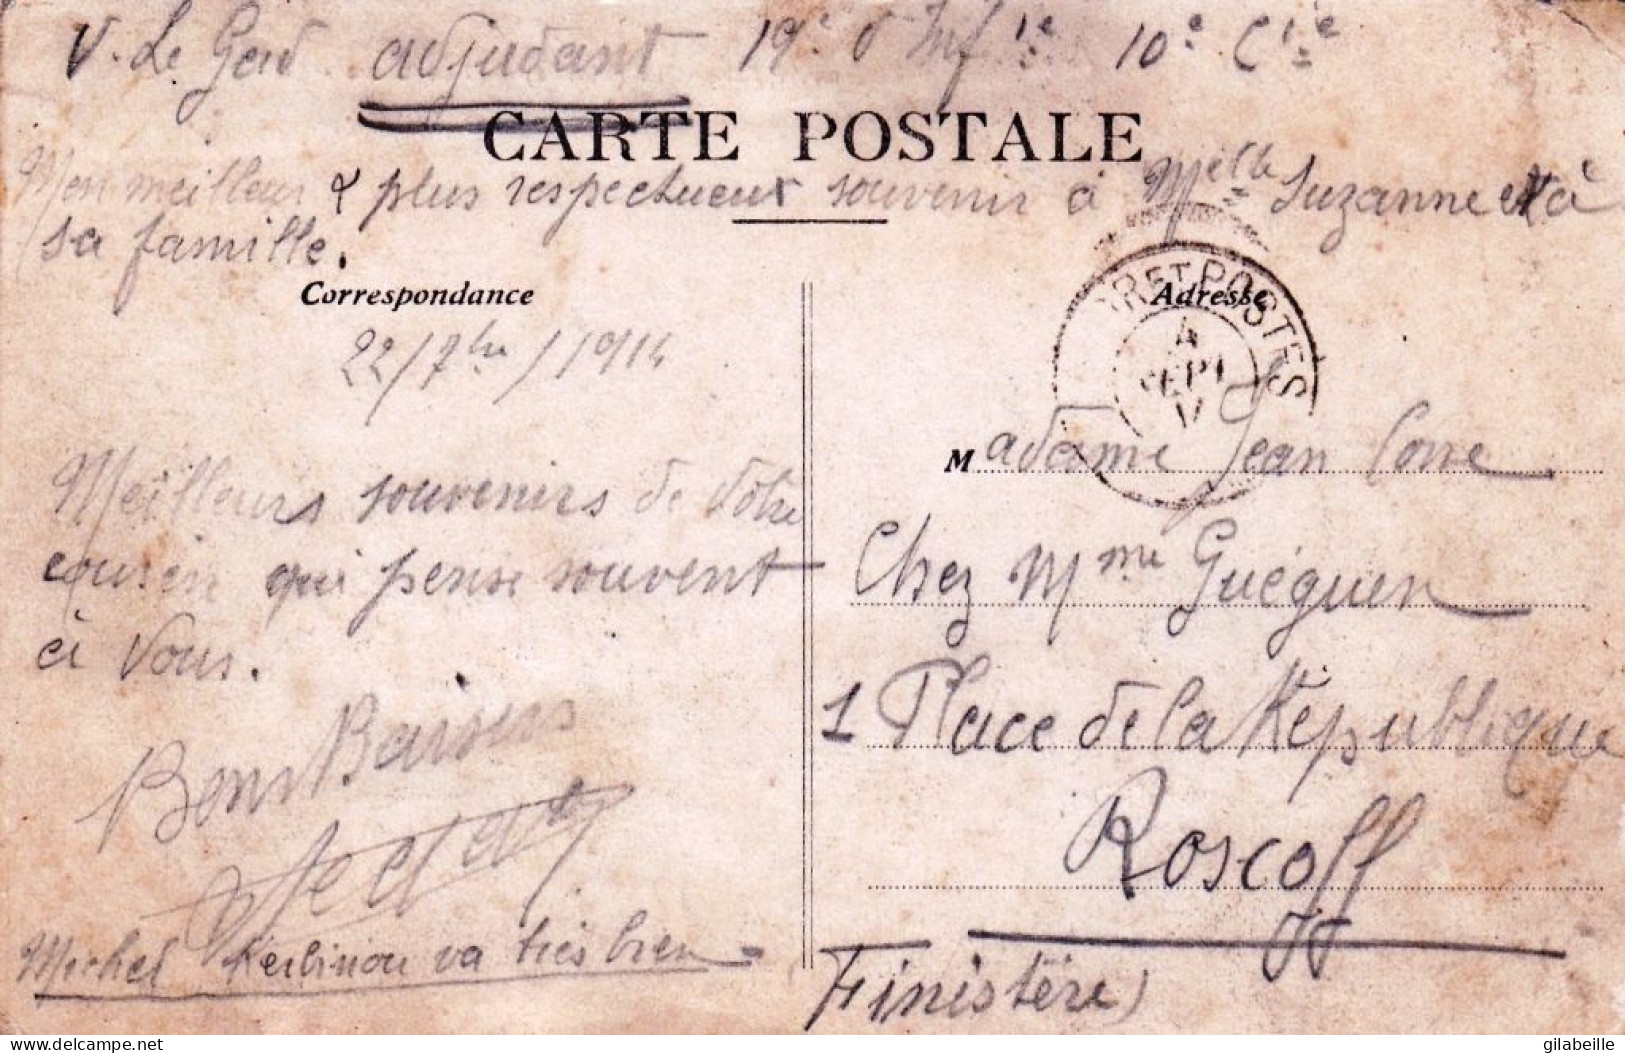 V. Le Gad adjudant 19e d'Infie 10e Cie
CARTE POSTALE
Mon meilleur & plus respectueux souvenir à Melle Suzanne et à
sa famille.
Correspondance
22/7bre/1914
Meilleurs souvenirs de Votre
cousin qui pense souvent
à Vous.
Bons Baisers
Michel Kerbiriou va très bien
ET POSTES
4
SEPT
Adresse
Madame Jean Corre
Chez Mme Guéguen
1 Place de la République
Roscoff
Finistère)
delcampe.net
gilabeille